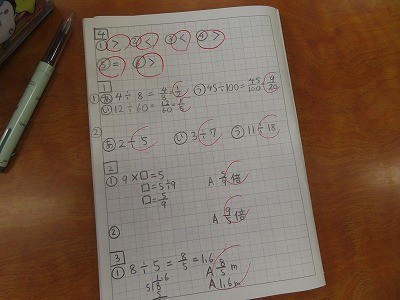 4
① > ② < ③ < ④ >
⑤ = ⑥ >
1
① あ 4÷8 = 4/8 = 1/2 う 45÷100 = 45/100 = 9/20
い 12÷60 = 12/60 = 1/5
2 あ 2÷5 い 3÷7 う 11÷18
2
① 9×□=5
□=5÷9
□=5/9 A 5/9倍
A 19/5倍
②
3
① 8÷5 = 8/5 = 1.6
A 8/5 m
A 1.6m
1.6
5)8
5